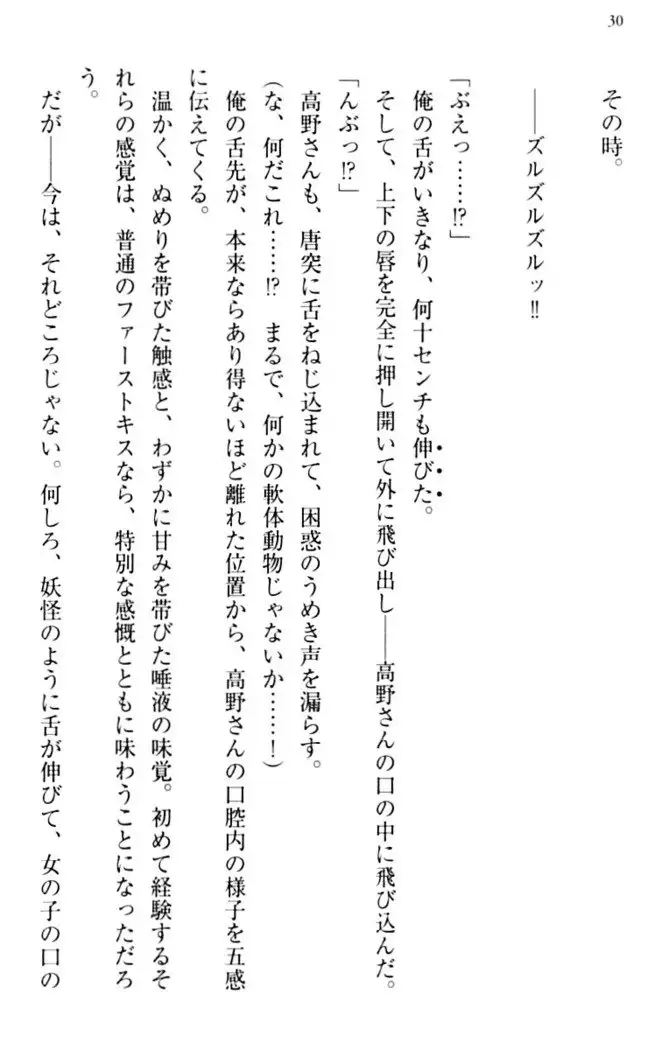 30
その時。
――ズルズルズルッ!!
「ぶえっ……!?」
俺の舌がいきなり、何十センチも伸びた。
そして、上下の唇を完全に押し開いて外に飛び出し――高野さんの口の中に飛び込んだ。
「んぶっ!?」
高野さんも、唐突に舌をねじ込まれて、困惑のうめき声を漏らす。
(な、何だこれ……!?　まるで、何かの軟体動物じゃないか……!)
俺の舌先が、本来ならあり得ないほど離れた位置から、高野さんの口腔内の様子を五感
に伝えてくる。
温かく、ぬめりを帯びた触感と、わずかに甘みを帯びた唾液の味覚。初めて経験するそ
れらの感覚は、普通のファーストキスなら、特別な感慨とともに味わうことになっただろ
う。
だが――今は、それどころじゃない。何しろ、妖怪のように舌が伸びて、女の子の口の